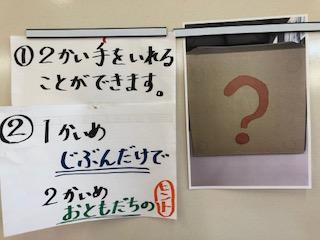 ①2かい手をいれる
ことができます。
②1かいめ
じぶんだけで
2かいめ
おともだちの
ヒント
?